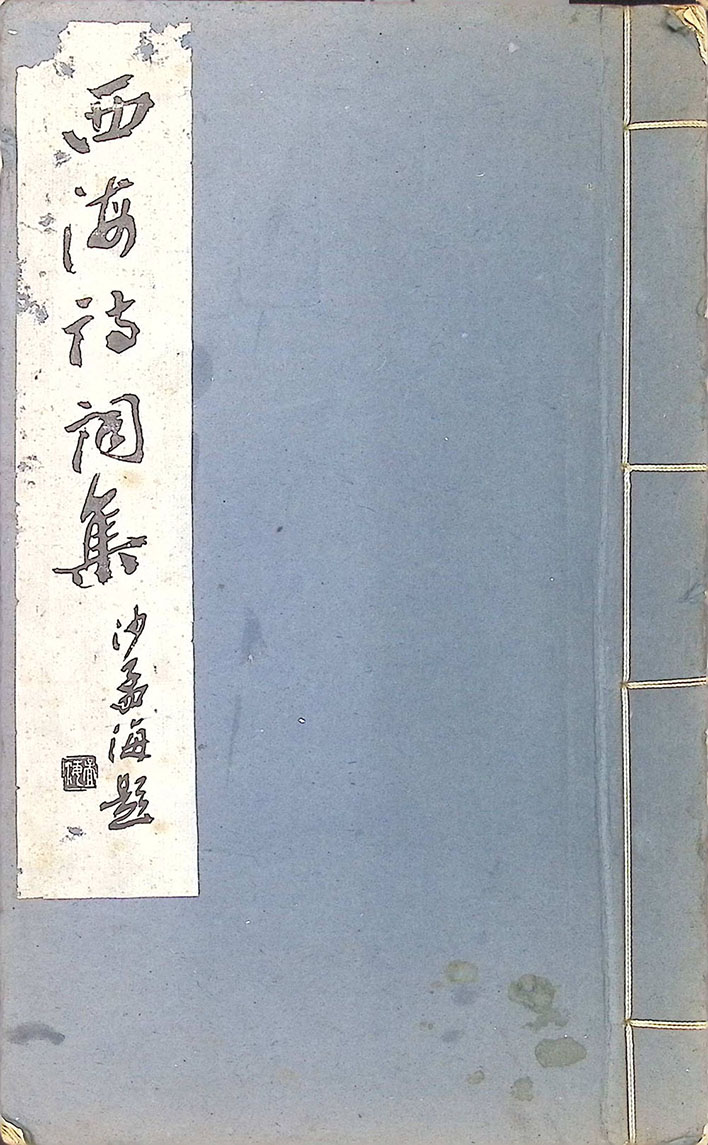 西海诗词集
沙孟海题